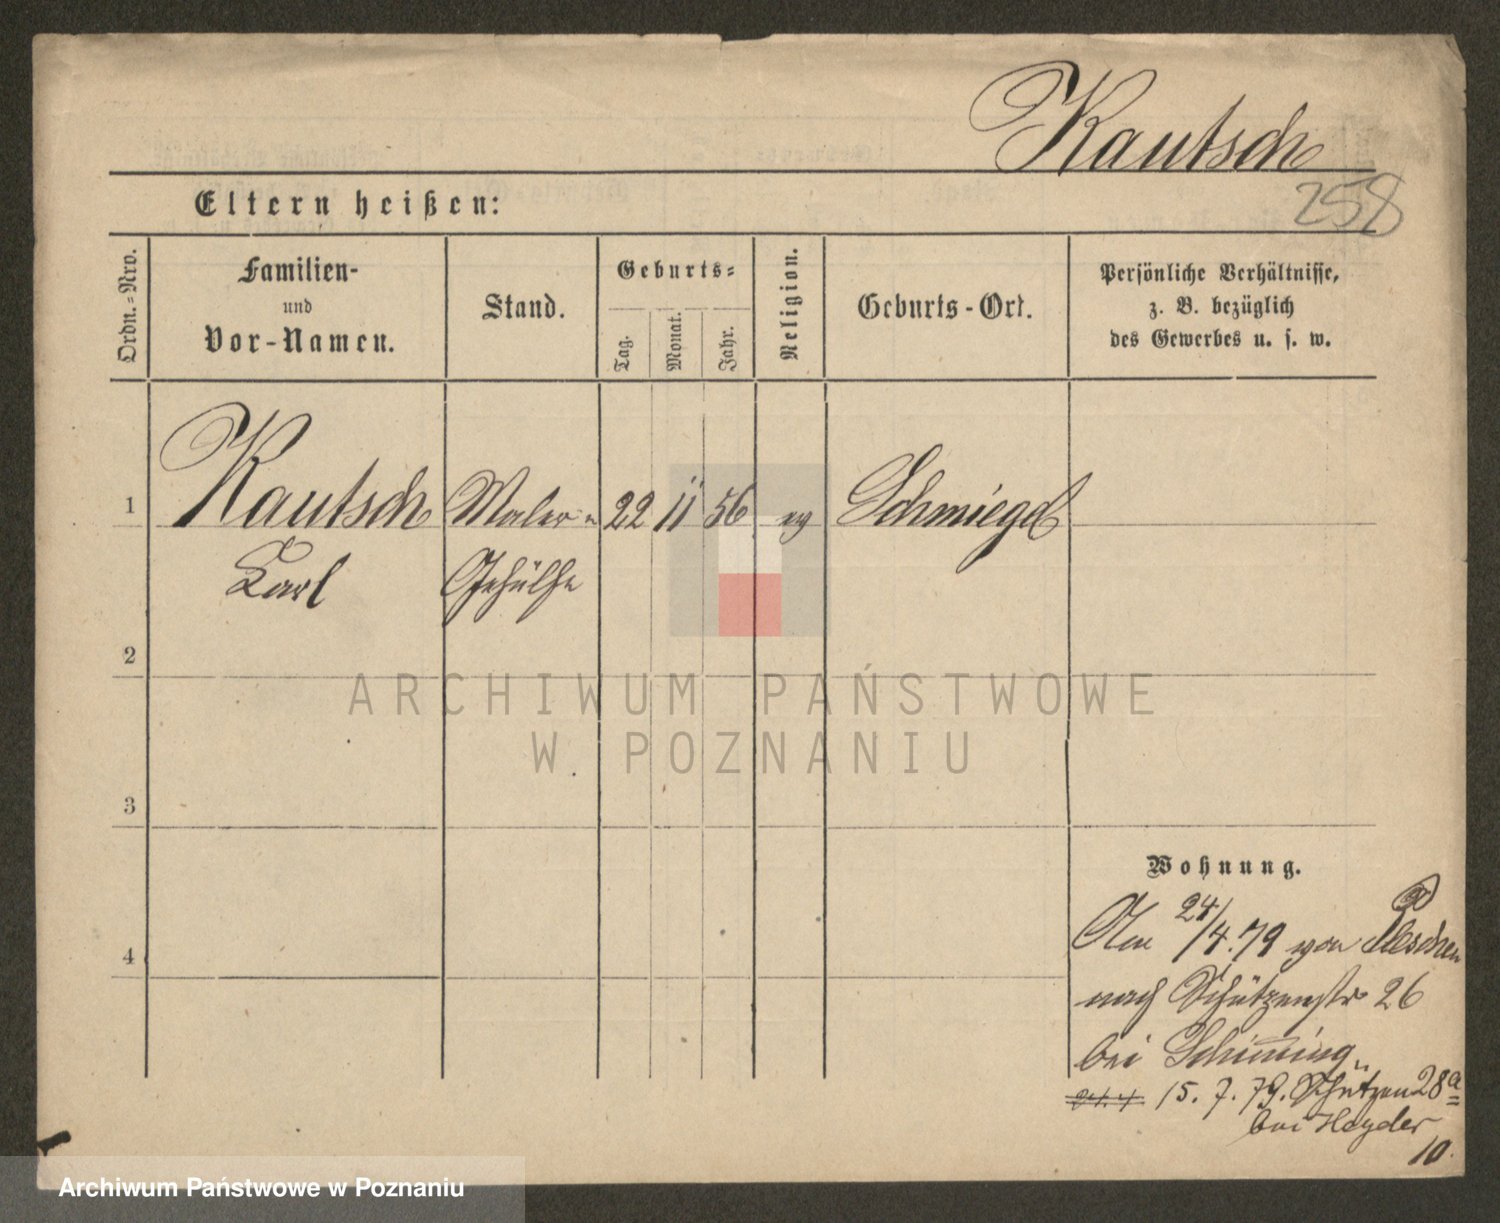 Kautsch
258
Eltern heißen:
Ordn.=Nro.
Familien-
und
Vor-Namen.
Stand.
Geburts=
Tag.
Monat.
Jahr.
Religion.
Geburts-Ort.
Persönliche Verhältnisse,
z. B. bezüglich
des Gewerbes u. s. w.
1
Kautsch
Karl
Maler=
Gehülfe
22
11
56
ev
Schmiegel
2
3
4
Wohnung.
Am 24/4.79 von Pleschen
nach Schützenstr 26
bei Schiming
15.7.79. Schützen 28a
bei Heyder
10.
ARCHIWUM PAŃSTWOWE
W POZNANIU
Archiwum Państwowe w Poznaniu